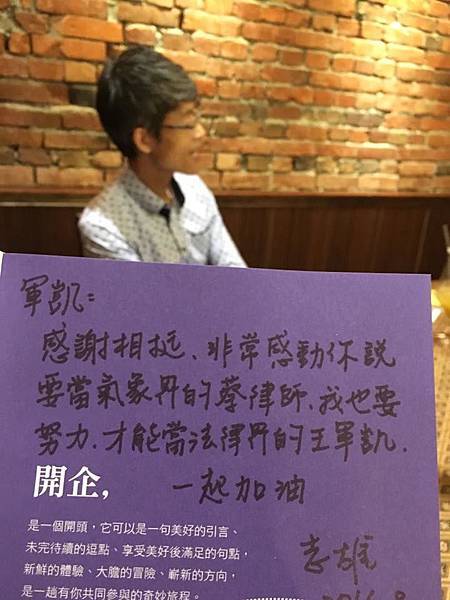 軍凱：
感謝相挺、非常感動你說
要當氣象界的蔡律師.我也要
努力.才能當法律界的王軍凱.
一起加油
志雄
開企,
是一個開頭，它可以是一句美好的引言、
未完待續的逗點、享受美好後滿足的句點，
新鮮的體驗、大膽的冒險、嶄新的方向，
是一趟有你共同參與的奇妙旅程。